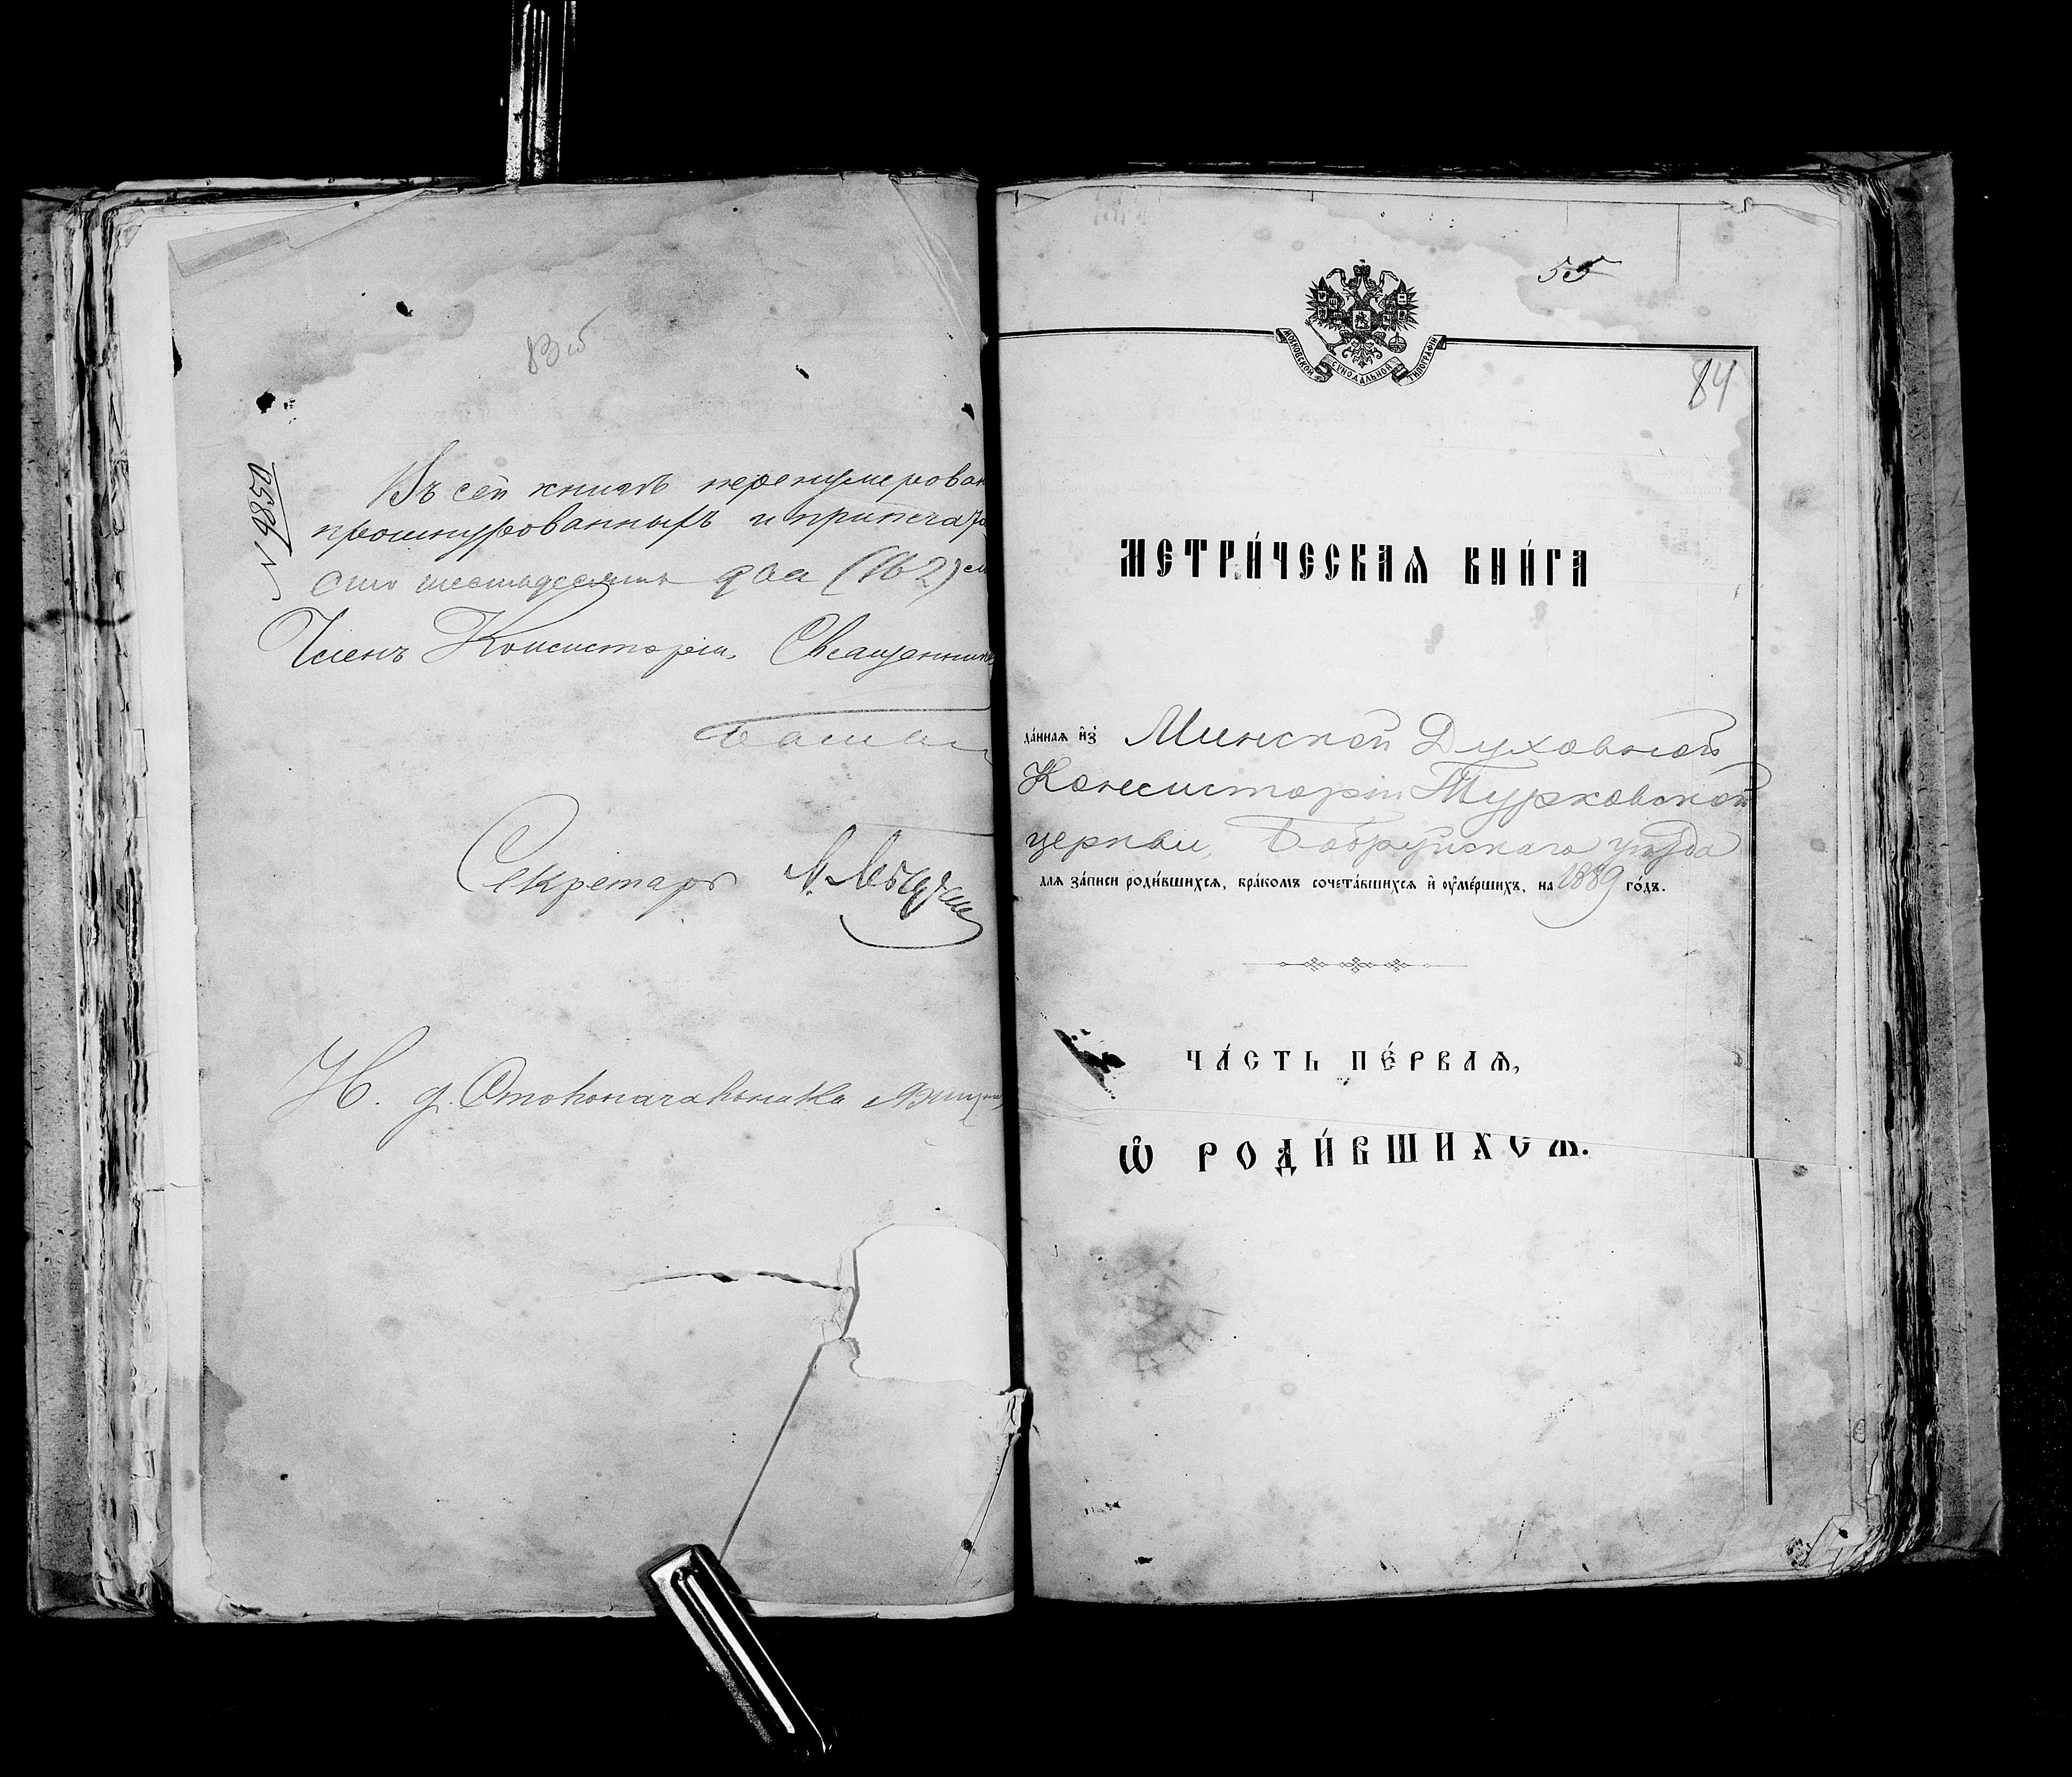 83 об
№ 9850
Въ сей книгѣ перенумерован
прошнурованныхъ и припеча
Сто шестьдесятъ два (162)
Членъ Консисторіи, Священникъ
Секретарь
Н. д. Столоначальника
55
МОСКОВСКОЙ СѴНОДАЛЬНОЙ ТИПОГРАФІИ
84
МЕТРИ́ЧЕСКАѦ КНИ́ГА
да́ннаѧ и҆зъ Минской Духовной
Консисторіи Турковской
церкви, Бобруйскаго уѣзда
длѧ за́писи роди́вшихсѧ, бра́комъ сочета́вшихсѧ и҆ ᲂу҆ме́ршихъ, на 1889 го́дъ.
ЧА́СТЬ ПЕ́РВАѦ,
Ѡ҆ РОДИ́ВШИХСѦ.